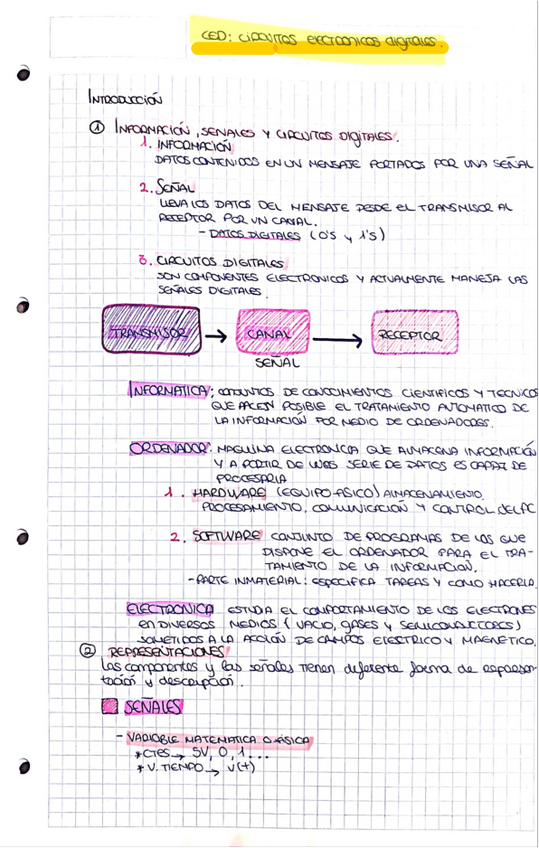 CED: CIRCUITOS ELECTRONICOS DIGITALES.
INTRODUCCIÓN
① INFORMACIÓN, SEÑALES Y CIRCUITOS DIGITALES.
1. INFORMACIÓN
DATOS CONTENIDOS EN UN MENSAJE PORTADOS POR UNA SEÑAL
2. SEÑAL
LLEVA LOS DATOS DEL MENSAJE DESDE EL TRANSMISOR AL
RECEPTOR POR UN CANAL.
- DATOS DIGITALES (0's y 1's)
3. CIRCUITOS DIGITALES
SON COMPONENTES ELECTRONICOS Y ACTUALMENTE MANEJA LAS
SEÑALES DIGITALES.
TRANSMISOR → CANAL → RECEPTOR
SEÑAL
INFORMATICA: CONJUNTOS DE CONOCIMIENTOS CIENTIFICOS Y TECNICOS
QUE HACEN POSIBLE EL TRATAMIENTO AUTOMATICO DE
LA INFORMACIÓN POR MEDIO DE ORDENADORES.
ORDENADOR: MAQUINA ELECTRONICA QUE ALMACENA INFORMACIÓN
Y A PARTIR DE UNAS SERIE DE DATOS ES CAPAZ DE
PROCESARLA
1. HARDWARE (EQUIPO FISICO) ALMACENAMIENTO,
PROCESAMIENTO, COMUNICACIÓN Y CONTROL del PC
2. SOFTWARE CONJUNTO DE PROGRAMAS DE LOS QUE
DISPONE EL ORDENADOR PARA EL TRA-
TAMIENTO DE LA INFORMACION.
- PARTE INMATERIAL: ESPECIFICA TAREAS Y COMO HACERLA.
ELECTRONICA ESTUDIA EL COMPORTAMIENTO DE LOS ELECTRONES
EN DIVERSOS MEDIOS (VACIO, GASES Y SEMICONDUCTORES)
SOMETIDOS A LA ACCIÓN DE CAMPOS ELECTRICO Y MAGNETICO.
② REPRESENTACIONES
Los componentes y las señales tienen diferente forma de represen-
tación y descripción.
SEÑALES
- VARIABLE MATEMATICA O FISICA
* CTES → 5V, 0, 1...
* V. TIEMPO → v(t)